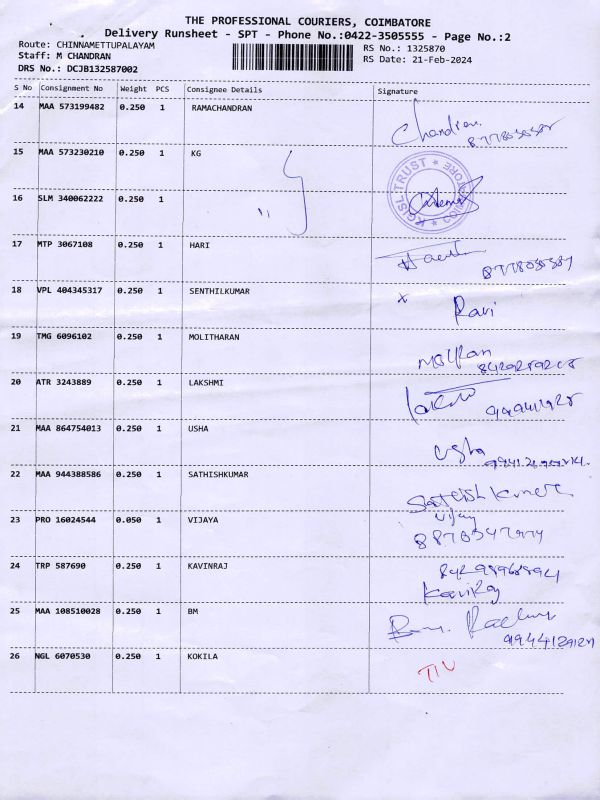 THE PROFESSIONAL COURIERS, COIMBATORE
Delivery Runsheet - SPT - Phone No.:0422-3505555 - Page No.:2
Route: CHINNAMETTUPALAYAM
RS No.: 1325870
Staff: M CHANDRAN
RS Date: 21-Feb-2024
DRS No.: DCJB132587002
S No Consignment No Weight PCS Consignee Details Signature
14 MAA 573199482 0.250 1 RAMACHANDRAN
Chandran
15 MAA 573230210 0.250 1 KG
KGISL TRUST * COIMBATORE *
16 SLM 340062222 0.250 1
17 MTP 3067108 0.250 1 HARI
18 VPL 404345317 0.250 1 SENTHILKUMAR
x Ravi
19 TMG 6096102 0.250 1 MOLITHARAN
20 ATR 3243889 0.250 1 LAKSHMI
21 MAA 864754013 0.250 1 USHA
Usha
22 MAA 944388586 0.250 1 SATHISHKUMAR
23 PRO 16024544 0.050 1 VIJAYA
Vijay
24 TRP 587690 0.250 1 KAVINRAJ
25 MAA 108510028 0.250 1 BM
26 NGL 6070530 0.250 1 KOKILA